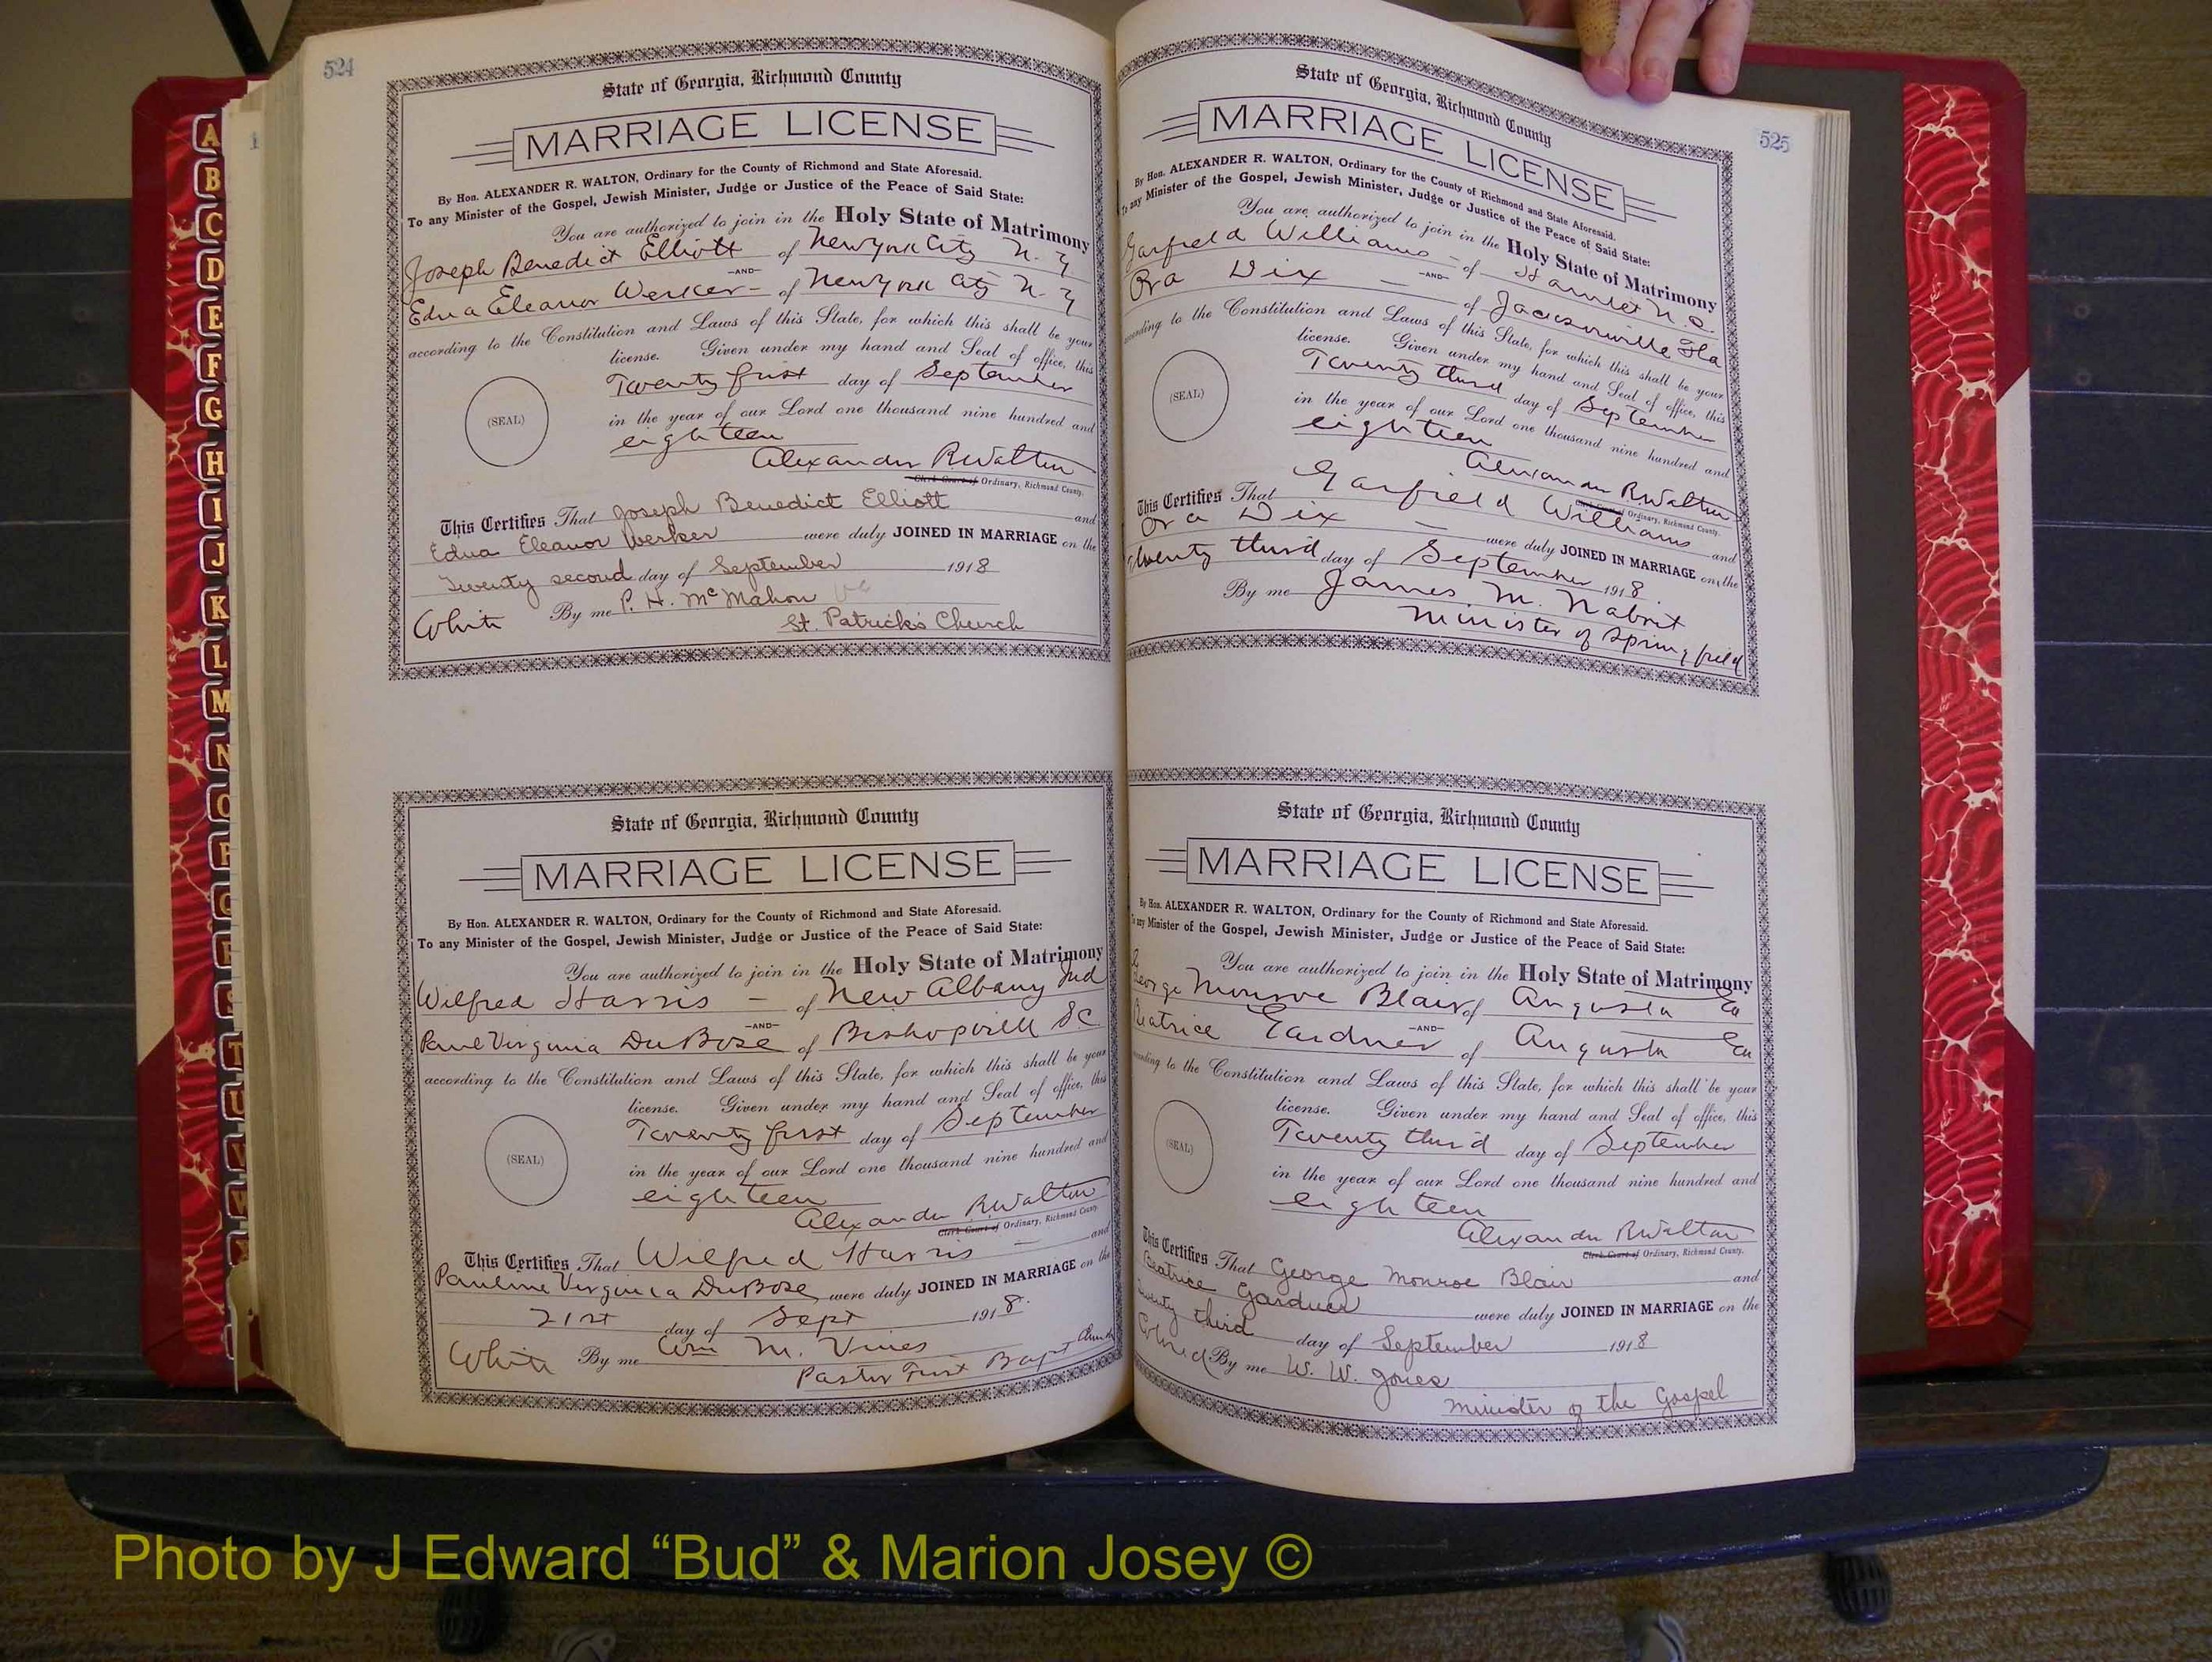 524
State of Georgia, Richmond County
MARRIAGE LICENSE
By Hon. ALEXANDER R. WALTON, Ordinary for the County of Richmond and State Aforesaid.
To any Minister of the Gospel, Jewish Minister, Judge or Justice of the Peace of Said State:
You are authorized to join in the Holy State of Matrimony
Joseph Benedict Elliott of New York City N.Y
—AND—
Edna Eleanor Werker - of New York City N.Y
according to the Constitution and Laws of this State, for which this shall be your
license. Given under my hand and Seal of office, this
Twenty first day of September
(SEAL)
in the year of our Lord one thousand nine hundred and
eighteen
Alexander R Walton
Clerk Court of Ordinary, Richmond County.
This Certifies That Joseph Benedict Elliott and
Edna Eleanor Werker were duly JOINED IN MARRIAGE on the
Twenty second day of September 1918
White By me P. H. McMahon
St. Patrick's Church
State of Georgia, Richmond County
MARRIAGE LICENSE
By Hon. ALEXANDER R. WALTON, Ordinary for the County of Richmond and State Aforesaid.
To any Minister of the Gospel, Jewish Minister, Judge or Justice of the Peace of Said State:
You are authorized to join in the Holy State of Matrimony
Wilfred Harris - of New Albany Ind
—AND—
Virginia DuBose of Bishopville SC
according to the Constitution and Laws of this State, for which this shall be your
license. Given under my hand and Seal of office, this
Twenty first day of September
(SEAL)
in the year of our Lord one thousand nine hundred and
eighteen
Alexander R Walton
Clerk Court of Ordinary, Richmond County.
This Certifies That Wilfred Harris - and
Pauline Virginia DuBose were duly JOINED IN MARRIAGE on the
21st day of Sept 1918.
White By me Wm M. Vines
Pastor First Bapt Church
525
State of Georgia, Richmond County
MARRIAGE LICENSE
By Hon. ALEXANDER R. WALTON, Ordinary for the County of Richmond and State Aforesaid.
To any Minister of the Gospel, Jewish Minister, Judge or Justice of the Peace of Said State:
You are authorized to join in the Holy State of Matrimony
Garfield Williams - of Hamlet N.C.
—AND—
Ora Dix - of Jacksonville Fla
according to the Constitution and Laws of this State, for which this shall be your
license. Given under my hand and Seal of office, this
Twenty third day of September
(SEAL)
in the year of our Lord one thousand nine hundred and
eighteen
Alexander R Walton
Clerk Court of Ordinary, Richmond County.
This Certifies That Garfield Williams and
Ora Dix - were duly JOINED IN MARRIAGE on the
twenty third day of September 1918
By me James M. Nabrit
Minister of Springfield
State of Georgia, Richmond County
MARRIAGE LICENSE
By Hon. ALEXANDER R. WALTON, Ordinary for the County of Richmond and State Aforesaid.
To any Minister of the Gospel, Jewish Minister, Judge or Justice of the Peace of Said State:
You are authorized to join in the Holy State of Matrimony
George Monroe Blair of Augusta Ga
—AND—
Beatrice Gardner of Augusta Ga
according to the Constitution and Laws of this State, for which this shall be your
license. Given under my hand and Seal of office, this
Twenty third day of September
(SEAL)
in the year of our Lord one thousand nine hundred and
eighteen
Alexander R Walton
Clerk Court of Ordinary, Richmond County.
This Certifies That George Monroe Blair and
Beatrice Gardner were duly JOINED IN MARRIAGE on the
twenty third day of September 1918
By me W. W. Jones
minister of the Gospel
A
B
C
D
E
F
G
H
I
J
K
L
M
N
O
P
Q
R
S
T
U
V
W
Photo by J Edward “Bud” & Marion Josey ©